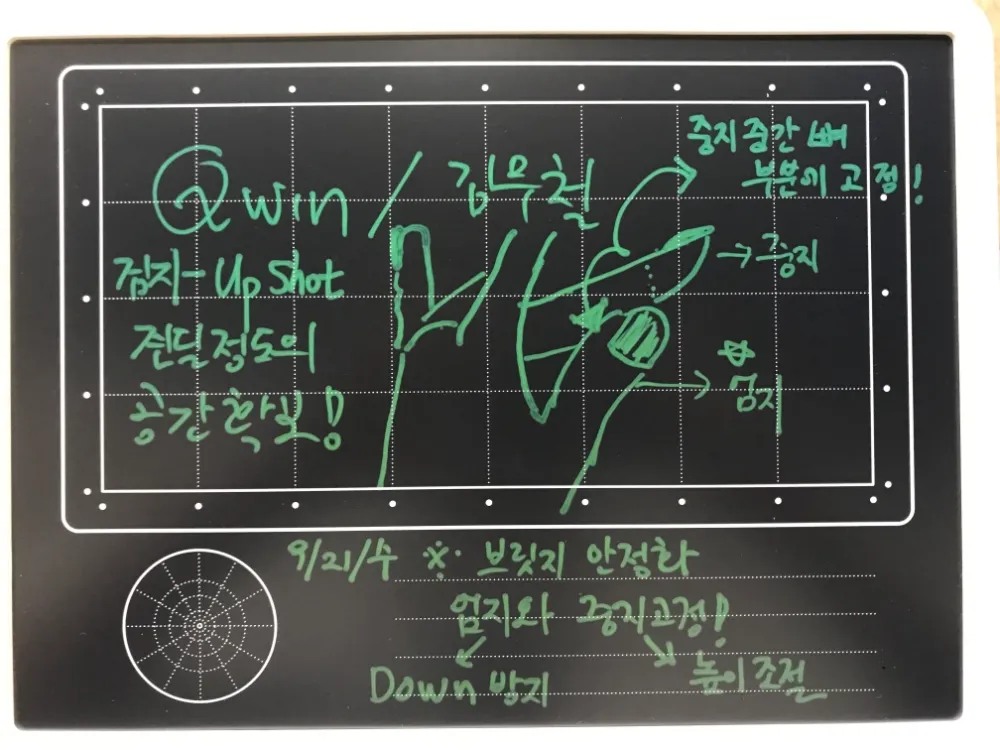 Q win / 김무철
중지 중간 뼈
부분에 고정!
→ 중지
검지-Up Shot
전달정도의
공간확보!
엄지
9/21/수 ※ 브릿지 안정화
엄지와 중지고정!
Down 방지
높이조절